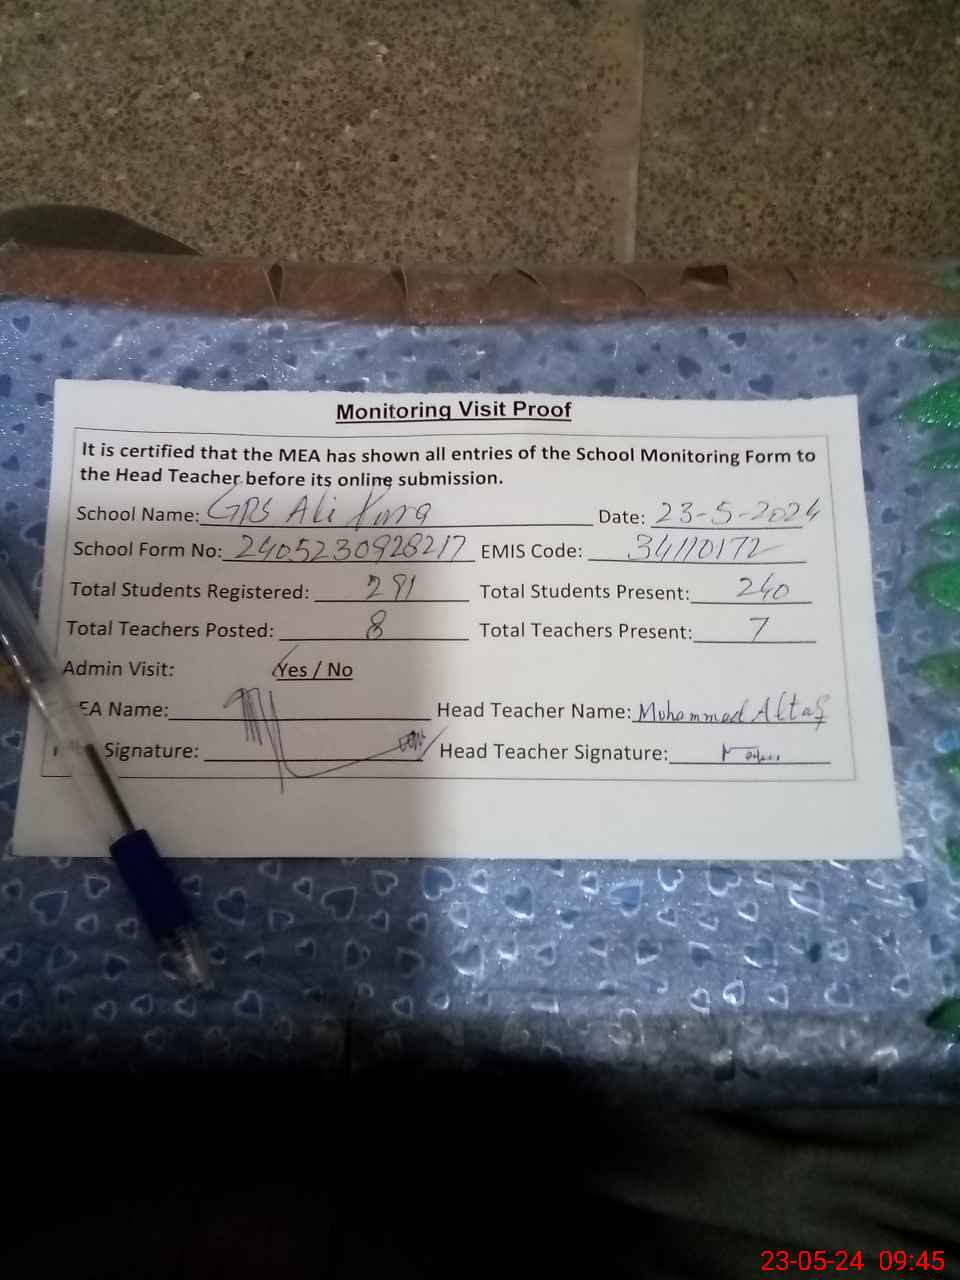 Monitoring Visit Proof
It is certified that the MEA has shown all entries of the School Monitoring Form to
the Head Teacher before its online submission.
School Name: GPS Ali Pura Date: 23-5-2024
School Form No: 2405230928217 EMIS Code: 34110172
Total Students Registered: 291 Total Students Present: 240
Total Teachers Posted: 8 Total Teachers Present: 7
Admin Visit: Yes / No
EA Name: Head Teacher Name: Mohammad Altaf
Signature: Head Teacher Signature:
23-05-24 09:45